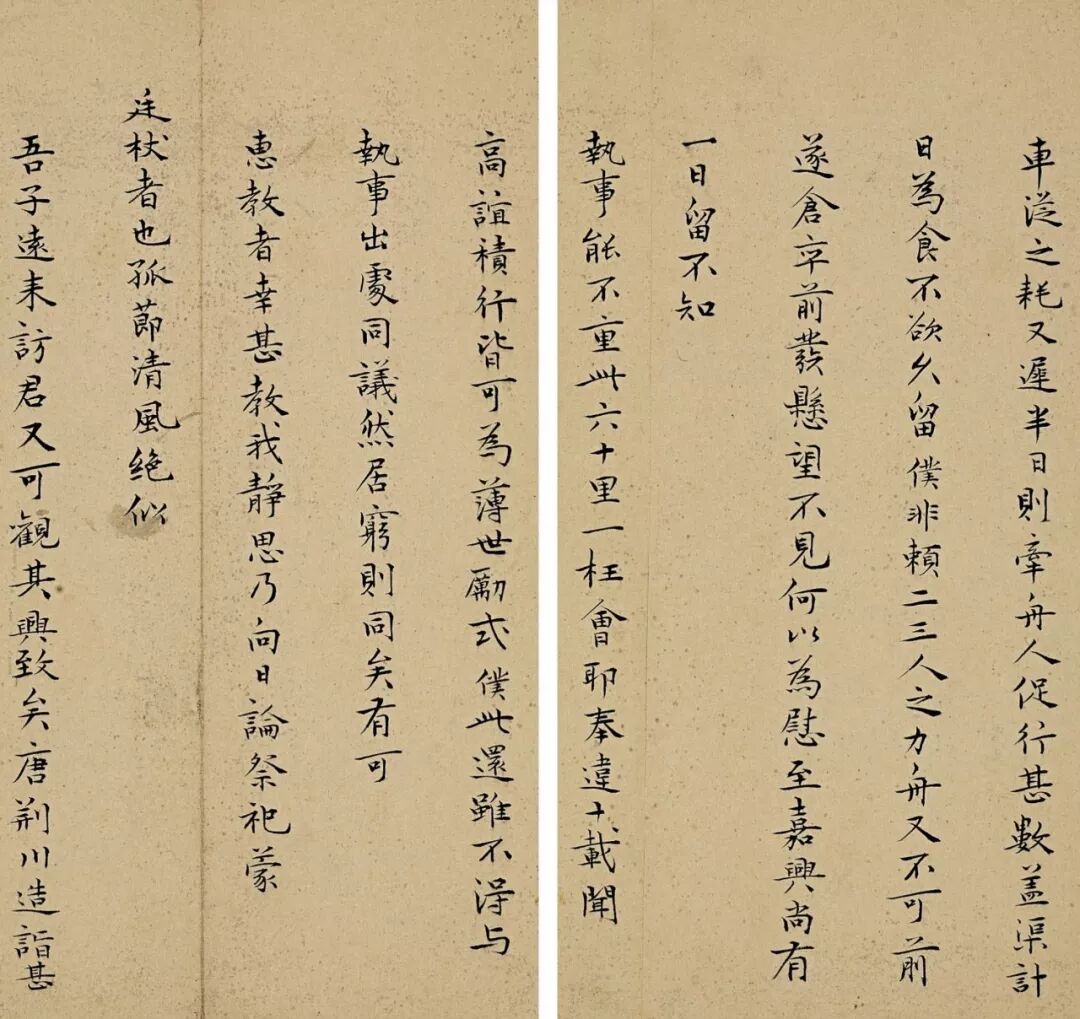 車從之耗又遲半日則牽舟人促行甚數蓋渠計
日為食不欲久留僕非賴二三人之力舟又不可前
遂倉卒前發懸望不見何以為慰至嘉興尚有
一日留不知
執事能不重此六十里一枉會耶奉違十載聞
高誼積行皆可為薄世勵式僕此還雖不得与
執事出處同議然居窮則同矣有可
惠教者幸甚教我靜思乃向日論祭祀蒙
廷杖者也孤節清風絶似
吾子遠来訪君又可觀其興致矣唐荆川造詣甚